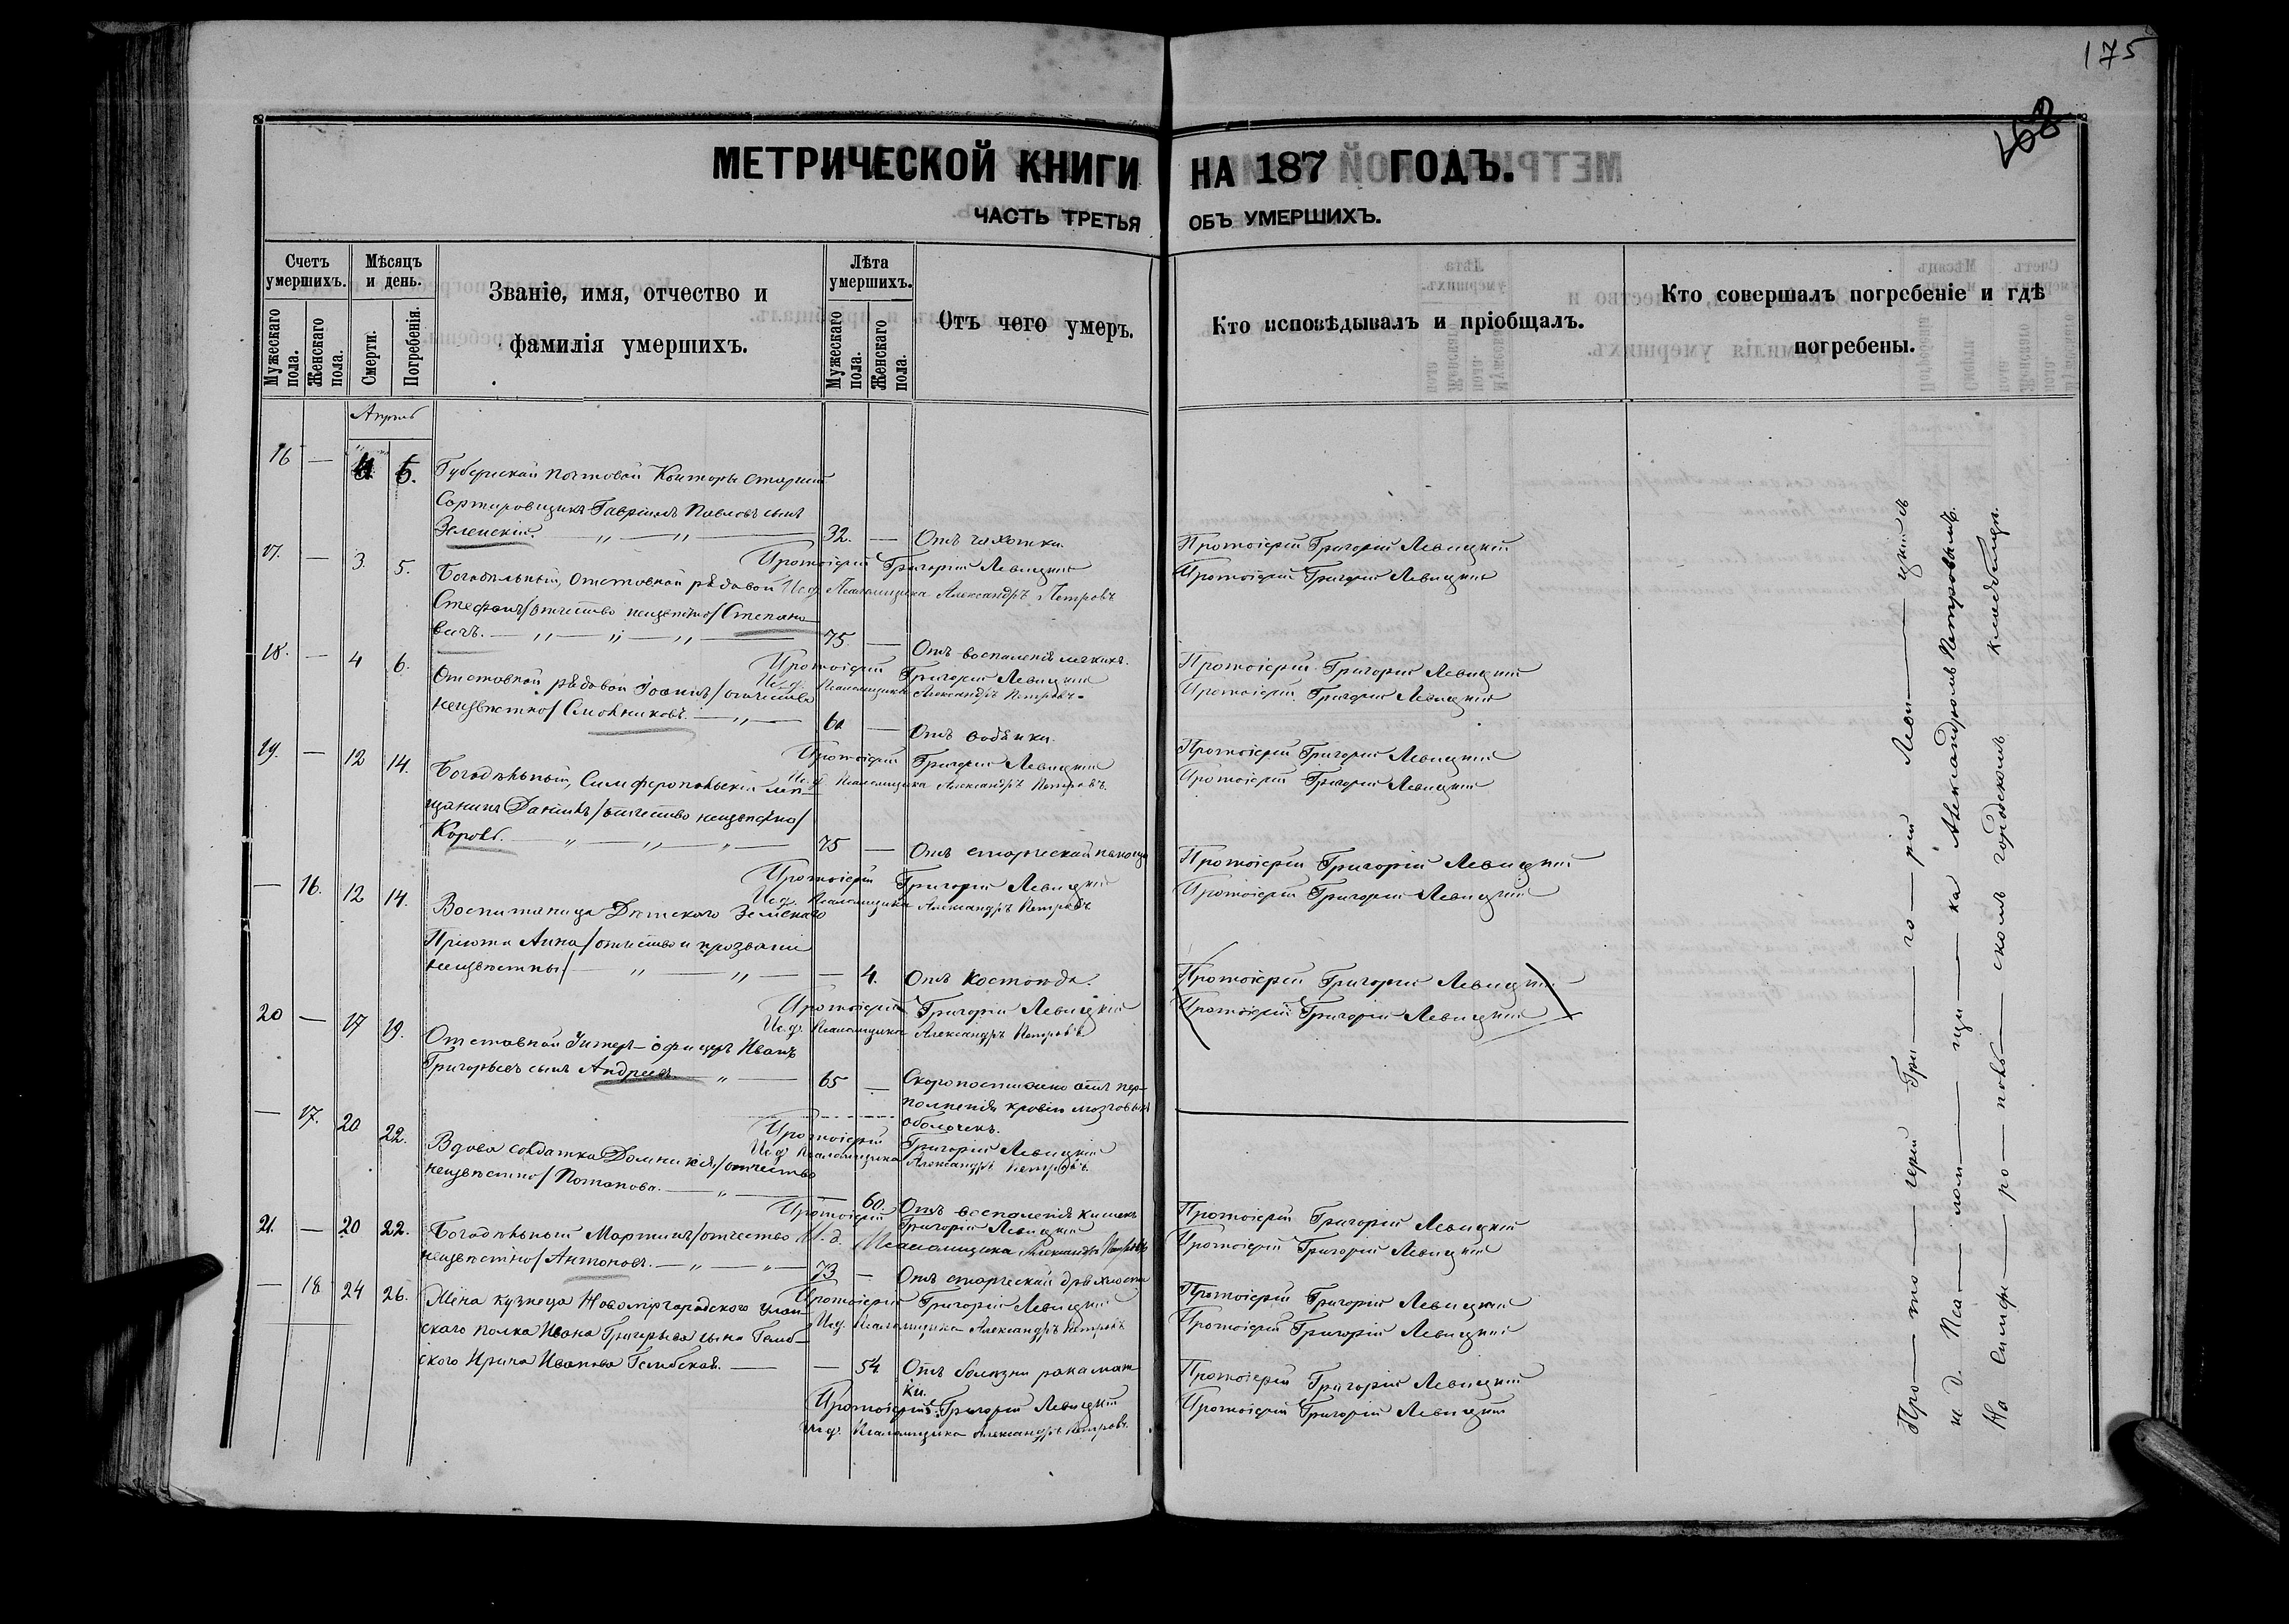 175
168
МЕТРИЧЕСКОЙ КНИГИ НА 187 ГОДЪ.
ЧАСТЬ ТРЕТЬЯ ОБЪ УМЕРШИХЪ.
Счетъ умершихъ.
Мужескаго пола.
Женскаго пола.
Мѣсяцъ и день.
Смерти.
Погребенія.
Званіе, имя, отчество и
фамилія умершихъ.
Лѣта умершихъ.
Мужескаго пола.
Женскаго пола
Отъ чего умеръ.
Кто исповѣдывалъ и пріобщалъ.
Кто совершалъ погребеніе и гдѣ
погребены.
Апрѣль
16 — 5. Губернской почтовой Конторы старшій
Сортировщикъ Гавріилъ Павловъ сынъ
Зеленскій. 32. — Отъ чахотки. Протоіерей Григорій Левицкій
Протоіерей Григорій Левицкій
Протоіерей Григорій Левицкій
17. — 3. 5. Богадѣльный, Отставной рядовой
И.д. Псаломщика Александръ Петровъ
Стефанъ /отчество неизвѣстно/ Степано-
вичъ. 75 — Отъ воспаленія легкихъ. Протоіерей Григорій Левицкій
Протоіерей Григорій Левицкій
Протоіерей Григорій Левицкій
И.д. Псаломщика Александръ Петровъ
18. — 4 6. Отставной рядовой Іоаннъ /отчество
неизвѣстно/ — Отъ водянки. Протоіерей Григорій Левицкій
Протоіерей Григорій Левицкій
Протоіерей Григорій Левицкій
И.д. Псаломщика Александръ Петровъ.
19. — 12 14. Богадѣльный, Симферопольскій мѣ-
щанинъ Даніилъ /отчество неизвѣстно/
Коровъ. 75 — Отъ старческой Протоіерей Григорій Левицкій
Протоіерей Григорій Левицкій
Протоіерей Григорій Левицкій
И.д. Псаломщика Александръ Петровъ
— 16. 12 14. Воспитаница Дѣтскаго Земскаго
Пріюта Анна /отчество и прозваніе
неизвѣстны/ — 4. Отъ Костоѣда. Протоіерей Григорій Левицкій
Протоіерей Григорій Левицкій
Протоіерей Григорій Левицкій
И.д. Псаломщика Александръ Петровъ
20 — 17 19. Отставной Унтеръ-офицеръ Иванъ
Григорьевъ сынъ Андреевъ 65 — Скоропостижно отъ пере-
полненія кровію мозговыхъ
оболочекъ.
Протоіерей Григорій Левицкій
И.д. Псаломщика Александръ Петровъ
— 17. 20 22. Вдова солдатка Домникія /отчество
неизвѣстно/ Потапова. — 60. Отъ воспаленія кишекъ Протоіерей Григорій Левицкій
Протоіерей Григорій Левицкій
Протоіерей Григорій Левицкій
И.д. Псаломщика Александръ Петровъ
21. — 20 22. Богадѣльный Мартинъ /отчество
неизвѣстно/ Антоновъ. 73 — Отъ старческой дряхлости Протоіерей Григорій Левицкій
Протоіерей Григорій Левицкій
Протоіерей Григорій Левицкій
И.д. Псаломщика Александръ Петровъ
— 18 24 26. Жена кузнеца Новомиргородского улан-
скаго полка Ивана Григорьева сына
Ирина Иванова — 54 Отъ болезни рака мат-
ки. Протоіерей Григорій Левицкій
Протоіерей Григорій Левицкій
Протоіерей Григорій Левицкій
И.д. Псаломщика Александръ Петровъ.
Про — то — іерей Гри — го — рій Леви — цкій съ
и. д. Пса — лом — щи — ка Александромъ Петровымъ.
На Симфе — ро — поль — скомъ городскомъ кладбищѣ.